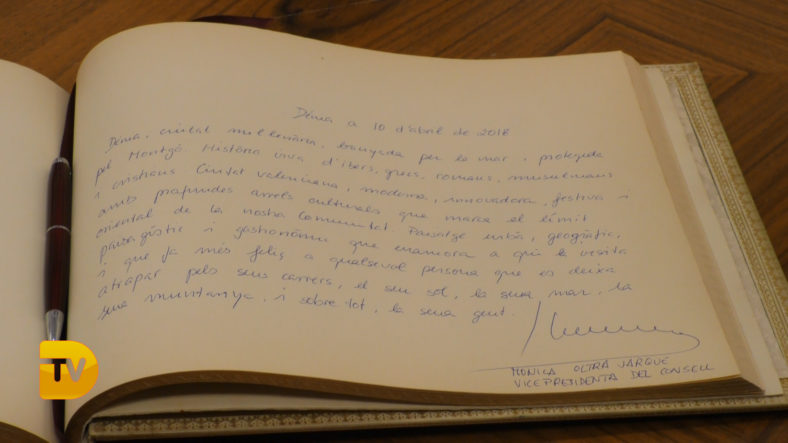 Dénia a 10 d'abril de 2018
Dénia, ciutat mil·lenària, banyada per la mar i protegida
pel Montgó. Història viva d'ibers, grecs, romans, musulmans
i cristians. Ciutat valenciana, moderna, innovadora, festiva i
amb profundes arrels culturals que marca el límit
oriental de la nostra Comunitat. Paisatge urbà, geogràfic,
i gastronòmic que enamora a qui la visita
i que fa més feliç a qualsevol persona que es deixa
atrapar pels seus carrers, el seu sol, la seua mar, la
seua muntanya, i sobre tot, la seua gent.
MÓNICA OLTRA JARQUE
VICEPRESIDENTA DEL CONSELL
DTV